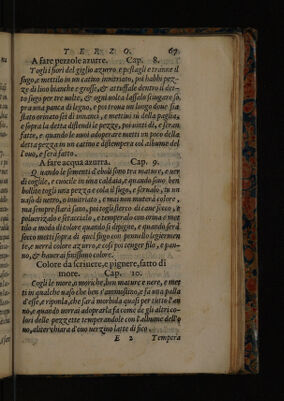 TERZO. 67
A fare pezzole azurre. Cap. 8.
Togli i fiori del giglio azurro, e pestagli e tranne il
sugo, e mettilo in un catino inuitriato, poi habbi pez-
ze di lino bianche e grosse, & attuffale dentro il det-
to sugo per tre uolte, & ogni uolta lassale sciugare so-
pra una panca di legno, e poi troua un luogo doue sia
stato orinato sei dì innanci, e mettiui sù della paglia,
e sopra la detta distendi le pezze, poi uinti dì, e seran
fatte, e quando le uuoi adoperare metti un poco della
detta pezza in un catino e distempera col albume del
l'ouo, e serà fatto.
A fare acqua azurra. Cap. 9.
Quando le sementi d'eboli sono tra mature, e uer
di coglile, e concile in una caldaia, e quando sono ben
bollite togli una pezza e cola il sugo, e serualo, in un
uaso di uetro, o inuitriato, e mai non muterà colore,
ma sempre starà sano, poi togli sterco di cane secco, e
poluerizalo e stracialo, e temperalo con orina e met
tilo a modo di colore quando si depigne, e quando serà
secco metti sopra di quel sugo con pennello legiermen
te, e uerrà colore azurro, e così poi tenger filo, e pan-
no, & hauerai finissimo colore.
Colore da scriuere, e pignere, fatto di
more. Cap. 10.
Cogli le more, a moriche, ben mature e nere, e met
ti in qualche uaso che ben s'ammostino, e fa una palla
d'esse, e riponla, che sarà morbida quasi per tutto l'an
no, e quando uorrai adoprarla fa come de gli altri co-
lori delle pezzette temperandole con l'albume dell'o
uo, aliter chiara d'ouo uerzino latte di fico.
E 2 Tempera